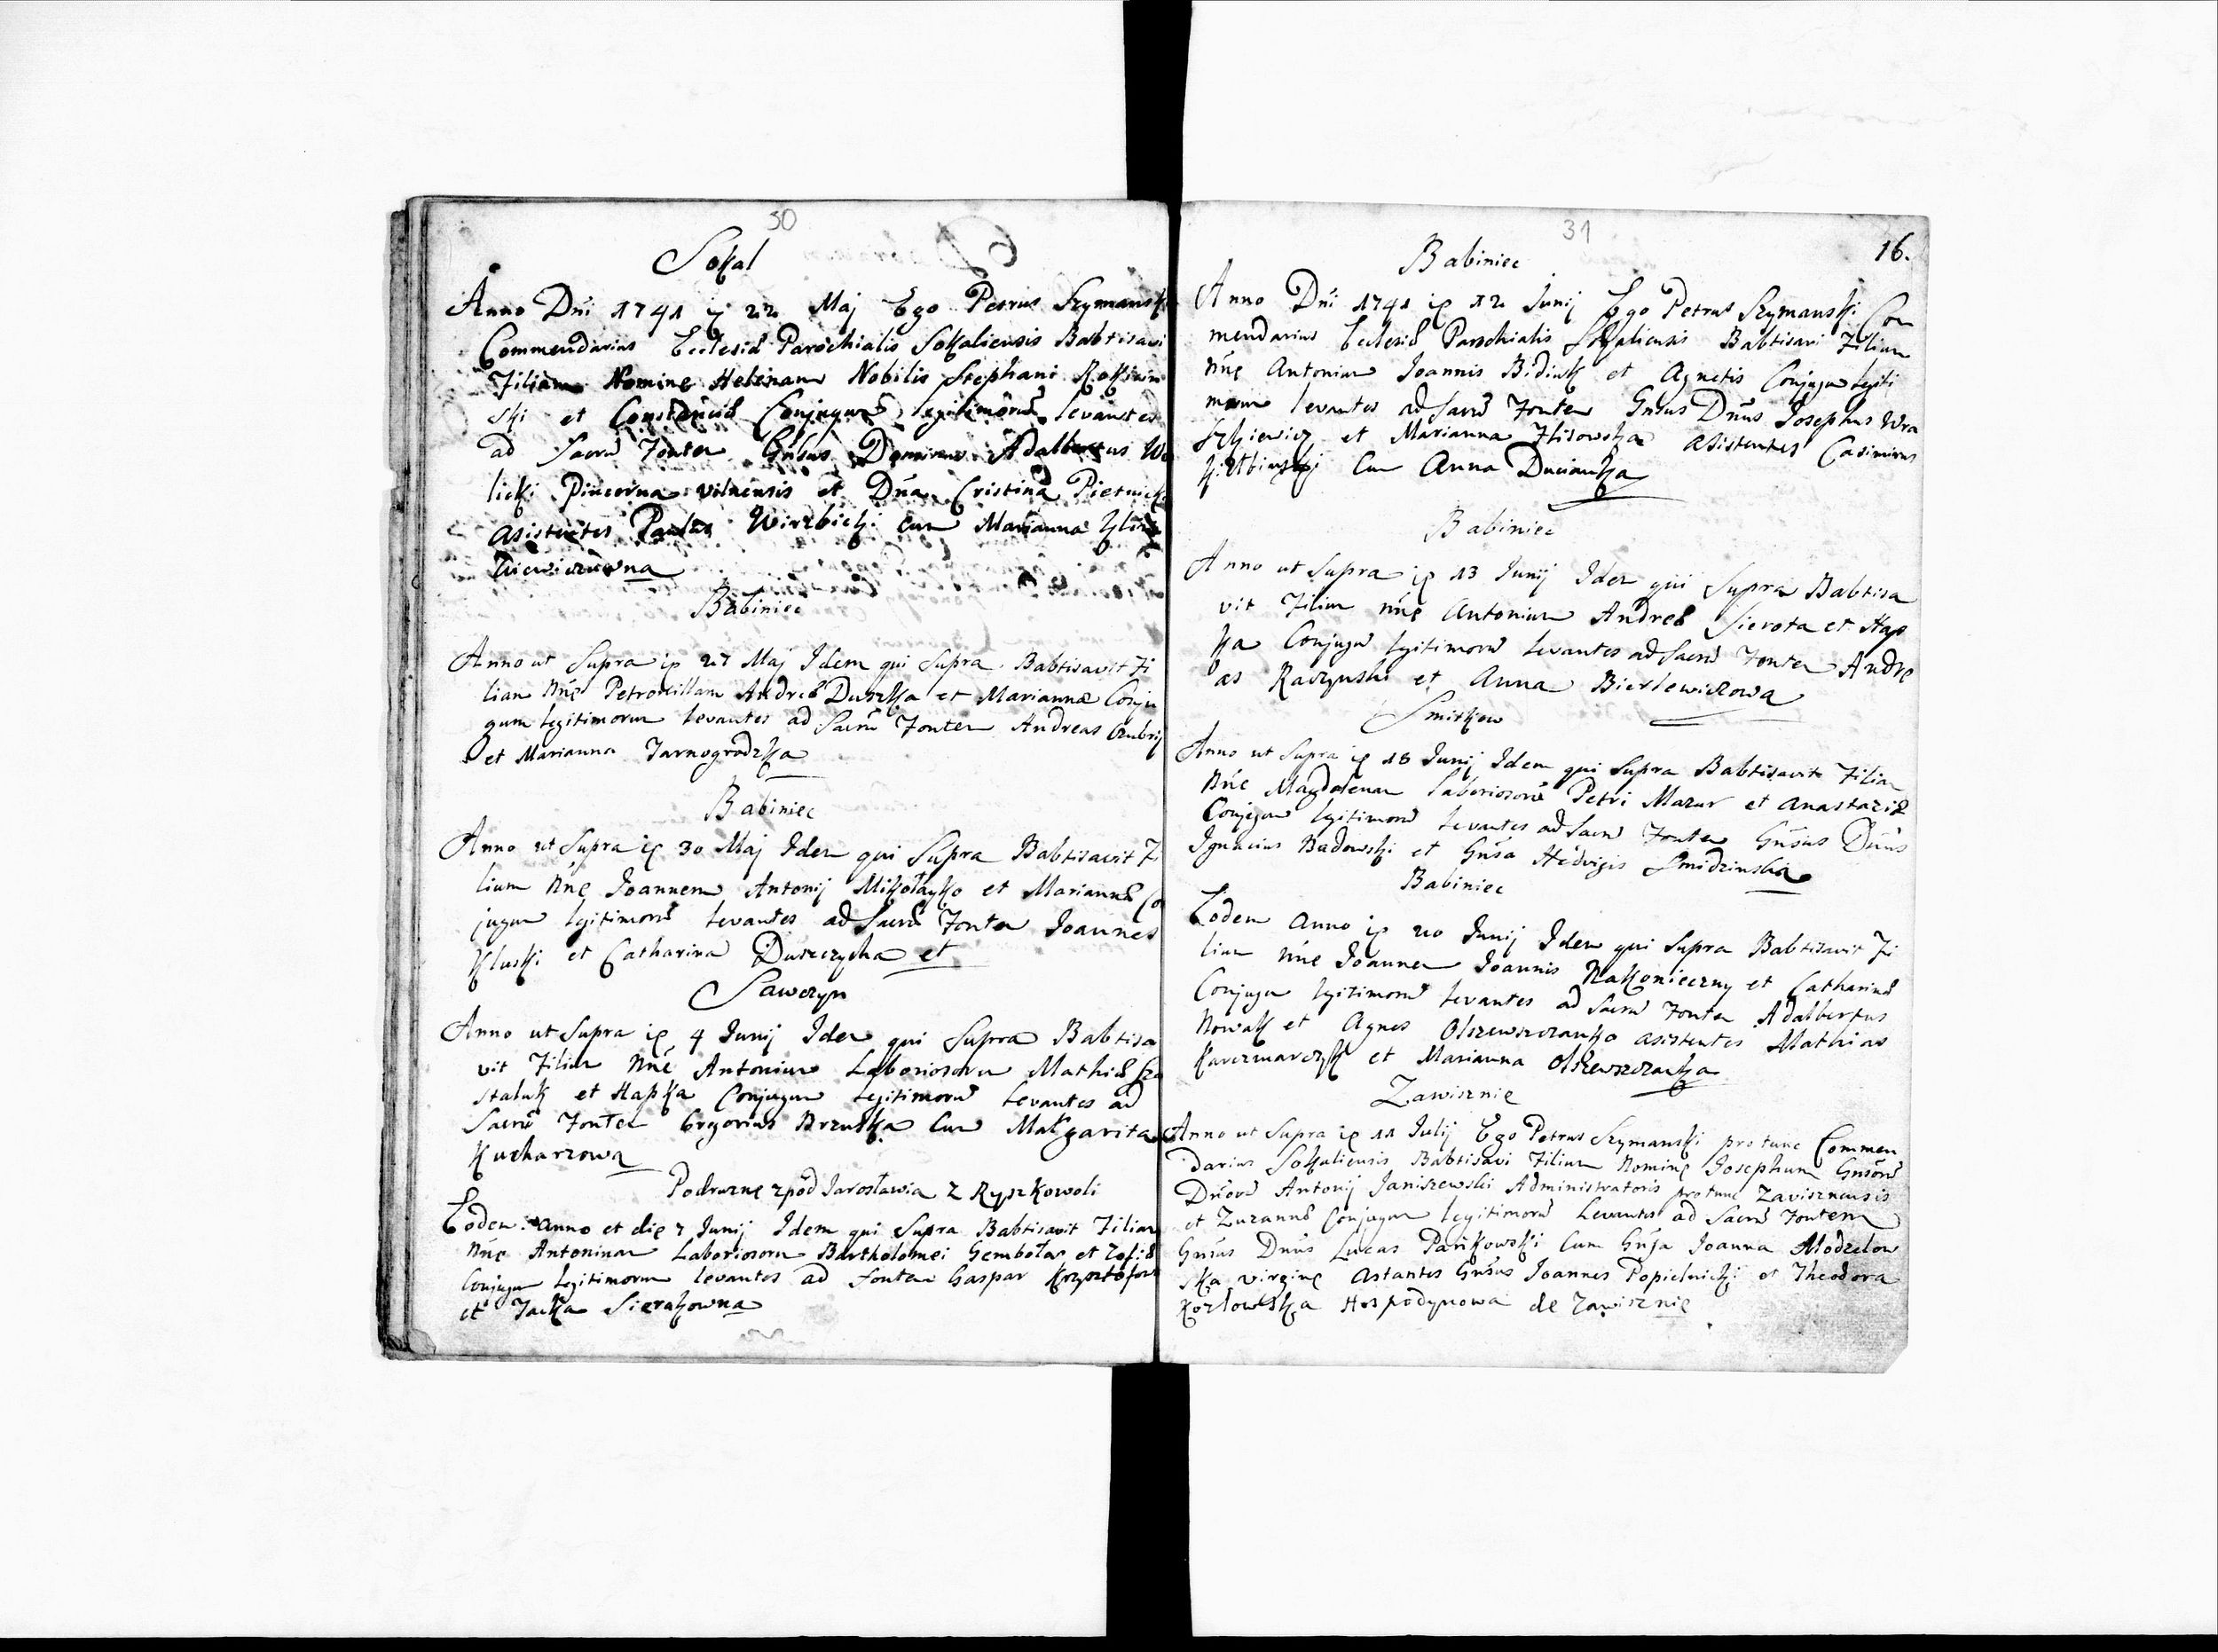 30
Sokal
Anno Dńi 1741 ię 22 Maj Ego Petrus Szymansk
Commendarius Ecclesiæ Parochialis Sokaliensis Babtisavi
Filiam Nomine Helenam Nobilis Stephani
ski et Constanciæ Conjugum legitimorum levantes
ad Sacrũ Fontem Gnsus Dominus Adalbertus Wo
licki Pincerna Vilnensis et Dńa Cristina Pietnick
asistentes Paulus Wirzbicki cum Marianna
Babiniec
Anno ut Supra ię 27 Maj Idem qui Supra Babtisavit Fi
liam Nńe Petronillam Andreæ Duszka et Mariannæ Conju
gum legitimorum levantes ad Sacrũ Fontem Andreas
et Marianna Tarnogrodzka
Babiniec
Anno ut Supra ię 30 Maj Idem qui Supra Babtisavit Fi
lium Nńe Joannem Antonij Mikołayko et Mariannæ Co
jugum legitimorũ levantes ad Sacrũ Fontem Joannes
Kluski et Catharina Duszczycha et
Sawczyn
Anno ut Supra ię 4 Junij Idem qui Supra Babtisa
vit Filium Nńe Antonium Laboriosorum Mathiæ Sza
staluk et Hapka Conjugum legitimorũ Levantes ad
Sacrũ Fontem Gregorius Brzuska Cum Malgarita
Kucharzowa
Podrozne zpod Jarosławia z Ryszkowoli
Eodem anno et die 7 Junij Idem qui Supra Babtisavit Filiam
Nńe Antoninam Laboriosorum Bartholomei Gembołas et Zofiæ
Conjugum legitimorum levantes ad fontem Gaspar Krzysztofor
et Jacka Sierakowna
31
16.
Babiniec
Anno Dńi 1741 ię 12 Junij Ego Petrus Szymanski Com
mendarius Ecclesiæ Parochialis Sokaliensis Babtisavi Filium
Nńe Antonium Joannis Bidiuk et Agnetis Conjugum legiti
morum levantes ad Sacrũ Fontem Gnsus Dńus Josephus Wra
et Marianna Flisowska asistentes Casimirus
Cum Anna Duciauka
Babiniec
Anno ut Supra ię 13 Junij Idem qui Supra Babtisa
vit Filium Nńe Antonium Andreæ Sierota et Hap
ka Conjugũ legitimorũ Levantes ad Sacrũ Fontem Andre
as Raczynski et Anna Bierlewiczowa
Smitkow
Anno ut Supra ię 18 Junij Idem qui Supra Babtisavit Filiam
Nńe Magdalenam Laboriosorũ Petri Mazur et Anastaziæ
Conjugum legitimorũ Levantes ad Sacrũ Fontem Gnsus Dńus
Ignacius Badowski et Gnsa Hedvigis Smidzinska
Babiniec
Eodem anno ię 20 Junij Idem qui Supra Babtisavit Fi
lium Nńe Joannem Joannis Nakonieczny et Catharinæ
Conjugum legitimorũ Levantes ad Sacrũ Fontem Adalbertus
Nowak et Agnes Olszewszczanka asistentes Mathias
Karczmarczyk et Marianna Olszewszczanka
Zawisznie
Anno ut Supra ię 11 Julij Ego Petrus Szymanski pro tunc Commen
darius Sokaliensis Babtisavi Filium Nomine Josephum Gnsorũ
Dńorũ Antonij Janiszewski Administratoris pro tunc Zavisznensis
et Zuzannæ Conjugum legitimorũ Levantes ad Sacrũ Fontem
Gnsus Dńus Lucas Pańkowski Cum Gnsa Joanna Modzelow
ska virgine Astantes Gnsus Joannes Popielnicki et Theodora
Kozłowska Hospodynowa de Zawisznie